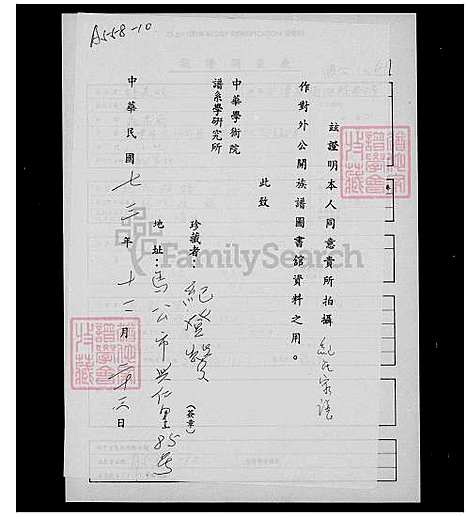 A558-10
茲證明本人同意貴所拍攝紀氏家譜
作對外公開族譜圖書館資料之用。
此致
中華學術院
譜系學研究所
珍藏者：紀燈 (簽章)
地址：馬公市興仁里85号
中華民國七三年十二月廿三日
FamilySearch
譜學會
珍藏